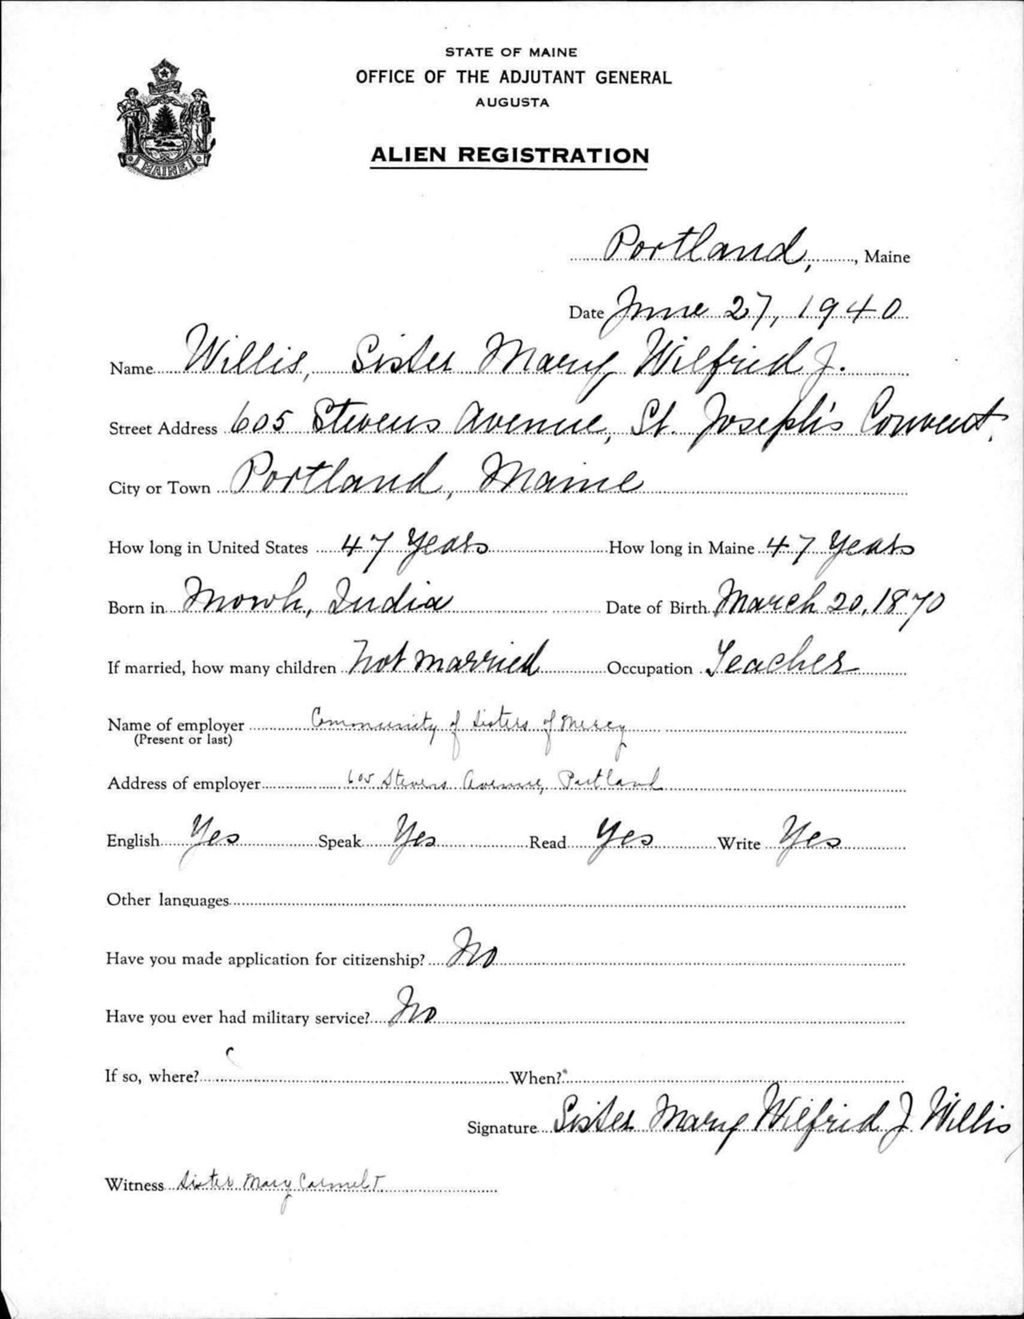 STATE OF MAINE
OFFICE OF THE ADJUTANT GENERAL
AUGUSTA
ALIEN REGISTRATION
MAINE
Portland, , Maine
Date June 27, 1940
Name Willis, Sister Mary Wilfrid J.
Street Address 605 Stevens Avenue, St. Joseph's Convent,
City or Town Portland, Maine
How long in United States 47 Years How long in Maine 47 Years
Born in Mowh, India Date of Birth March 20, 1870
If married, how many children Not married Occupation Teacher
Name of employer Community of Sisters of Mercy
(Present or last)
Address of employer 605 Stevens Avenue, Portland
English Yes Speak Yes Read Yes Write Yes
Other languages
Have you made application for citizenship? No
Have you ever had military service? No
If so, where? When?
Signature Sister Mary Wilfrid J. Willis
Witness Sister Mary Carmel T.